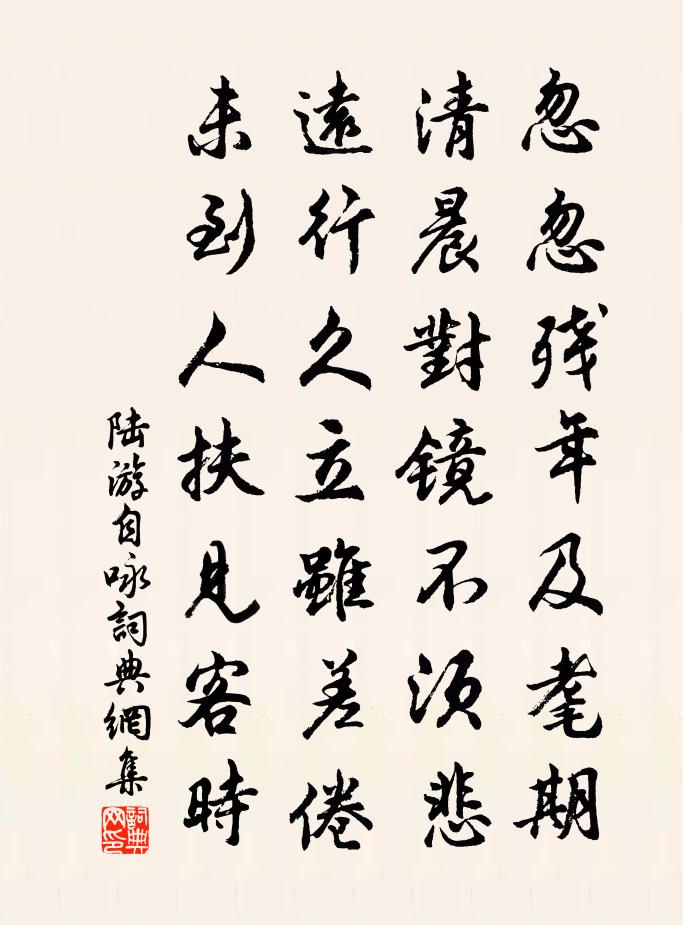 忽忽残年及耄期
清晨對镜不须悲
遠行久立雖差倦
未到人扶見客時
陆游自咏詞典網集
詞典网印